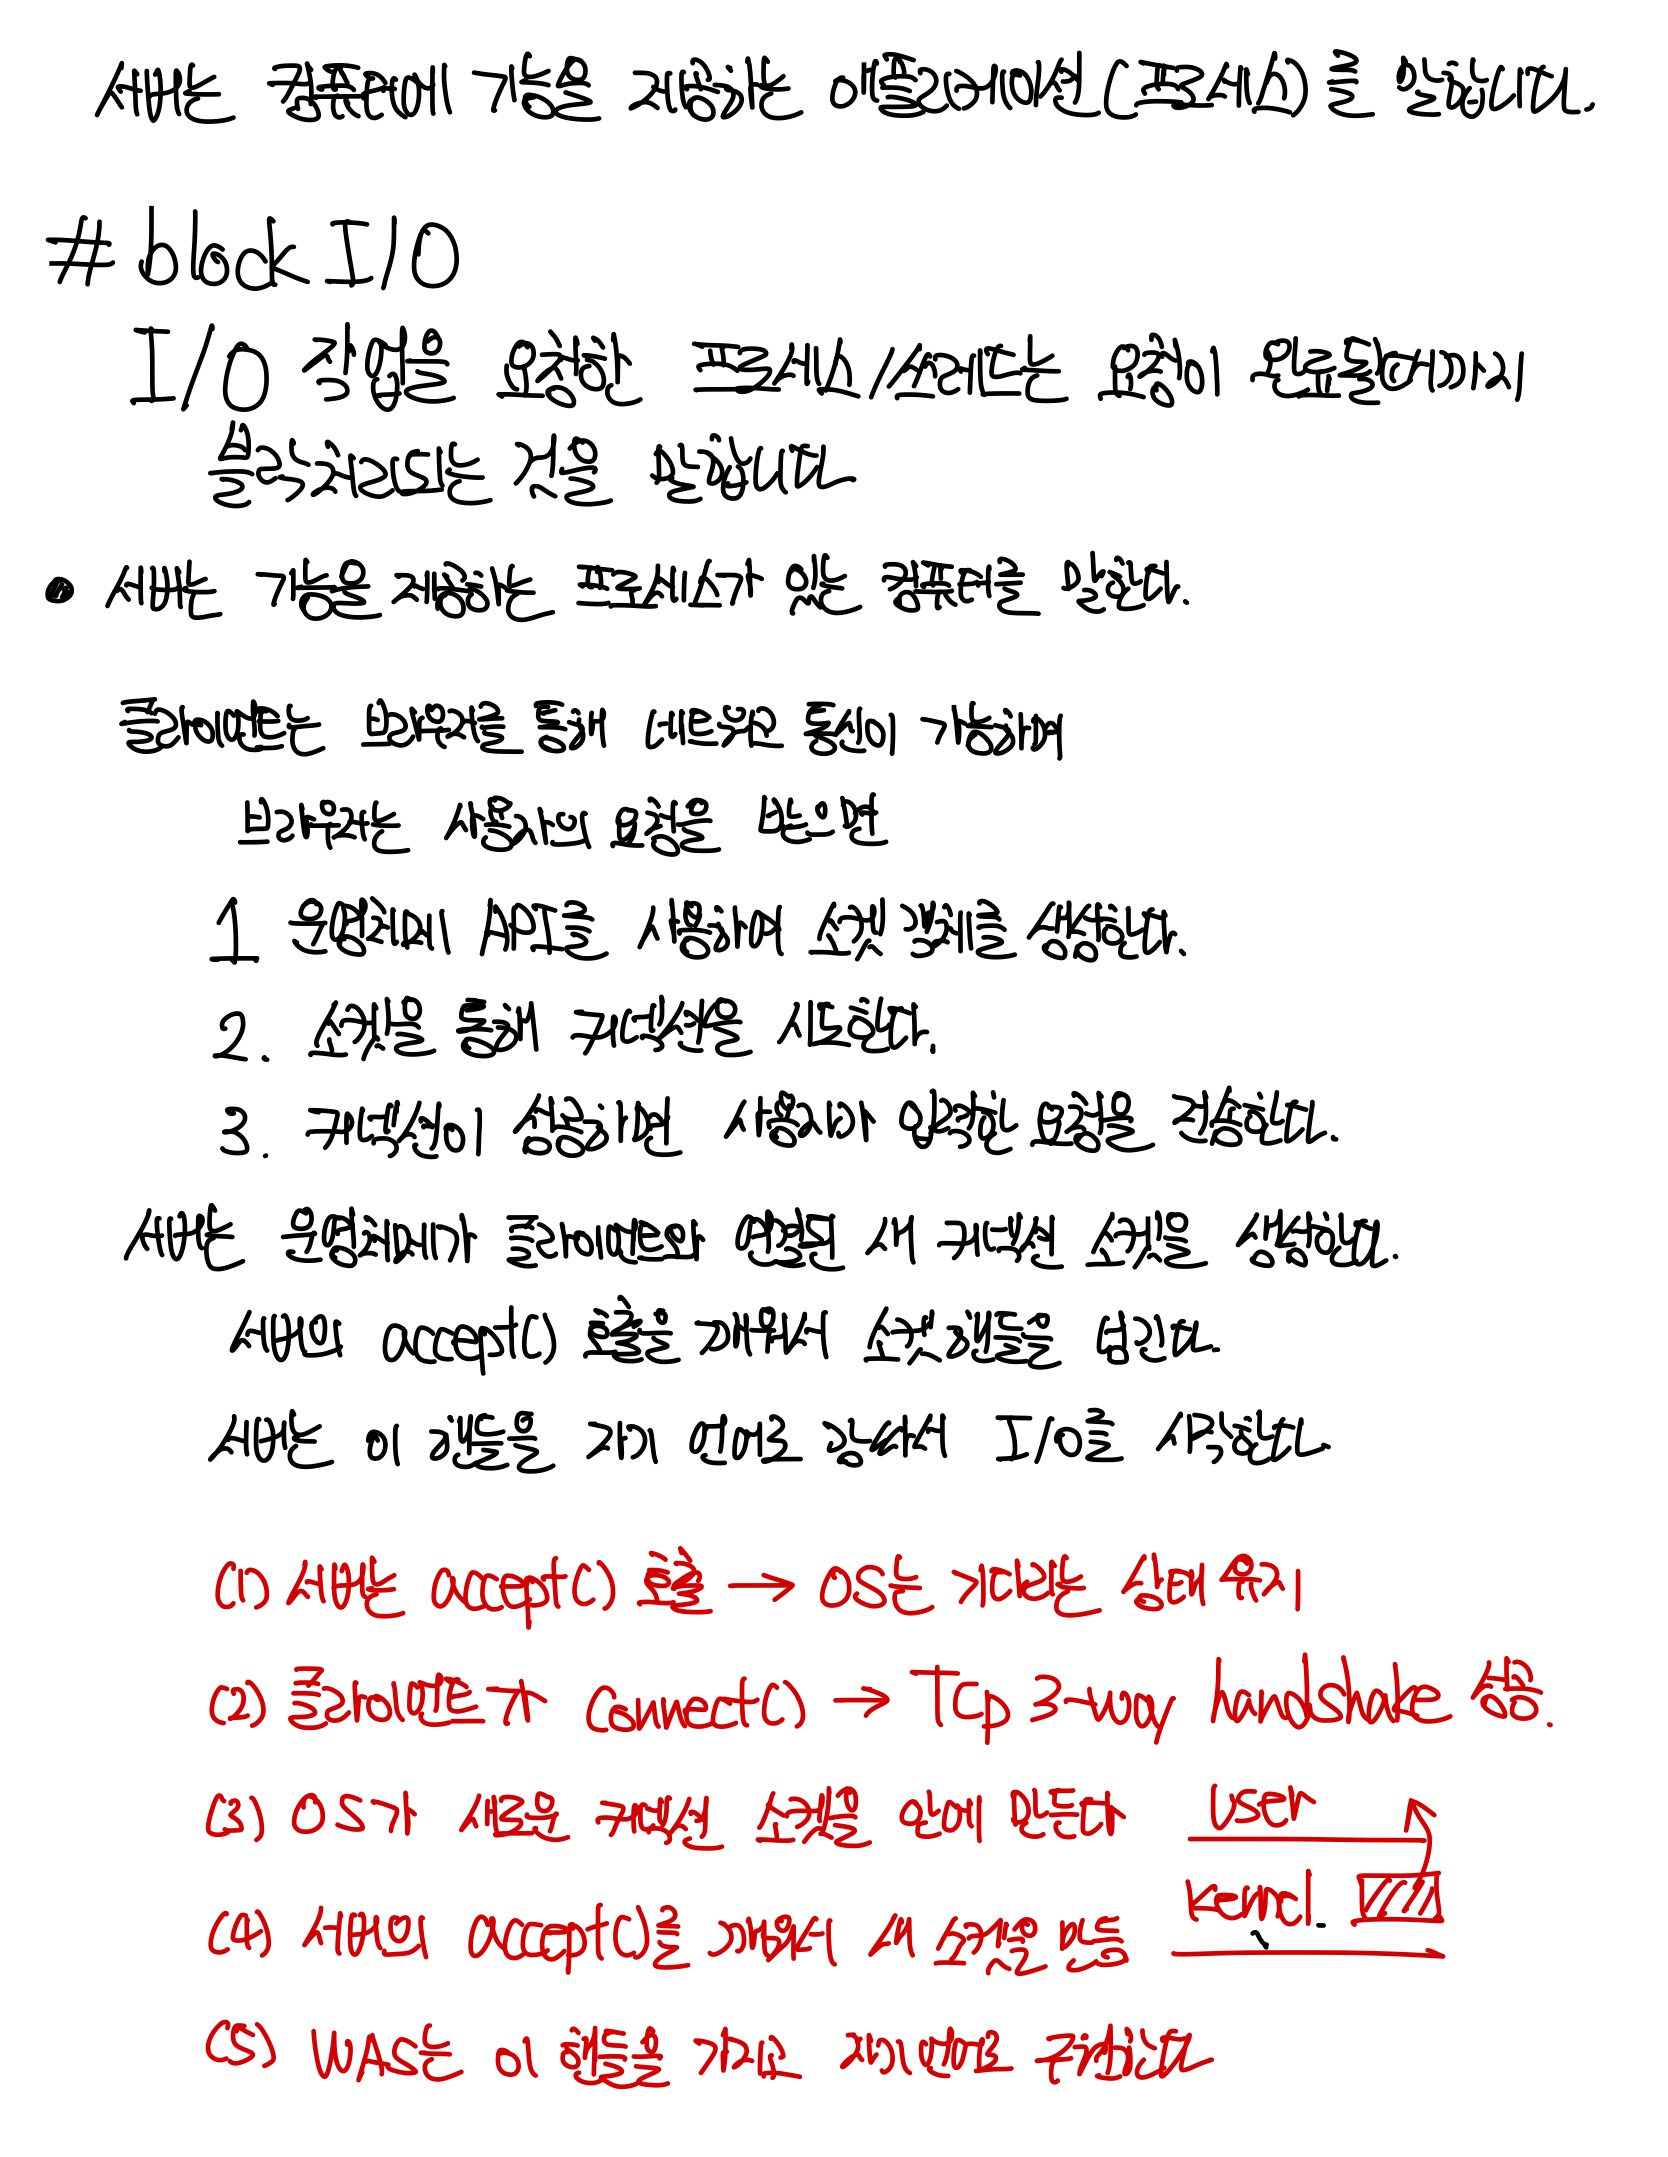 서버는 컴퓨터에 기능을 제공하는 애플리케이션(프로세스)를 말합니다.
# block I/O
I/O 작업을 요청한 프로세스/쓰레드는 요청이 완료될때까지
블락처리되는 것을 말합니다
• 서버는 기능을 제공하는 프로세스가 있는 컴퓨터를 말한다.
클라이언트는 브라우저를 통해 네트워크 통신이 가능하며
브라우저는 사용자의 요청을 받으면
1 운영체제 API를 사용하여 소켓 객체를 생성한다.
2. 소켓을 통해 커넥션을 시도한다.
3. 커넥션이 성공하면 사용자가 입력한 요청을 전송한다.
서버는 운영체제가 클라이언트와 연결된 새 커넥션 소켓을 생성한다.
서버의 accept() 호출을 깨워서 소켓핸들을 넘긴다.
서버는 이 핸들을 자기 언어로 감싸서 I/O를 시작한다
(1) 서버는 accept() 호출 → OS는 기다리는 상태 유지
(2) 클라이언트가 Connect() → TCp 3-way handshake 성공.
(3) OS가 새로운 커넥션 소켓을 안에 만든다
user
(4) 서버의 accept()를 깨워서 새 소켓을 만듬
kernel.
(5) WAS는 이 핸들을 가지고 자기언어로 구현한다